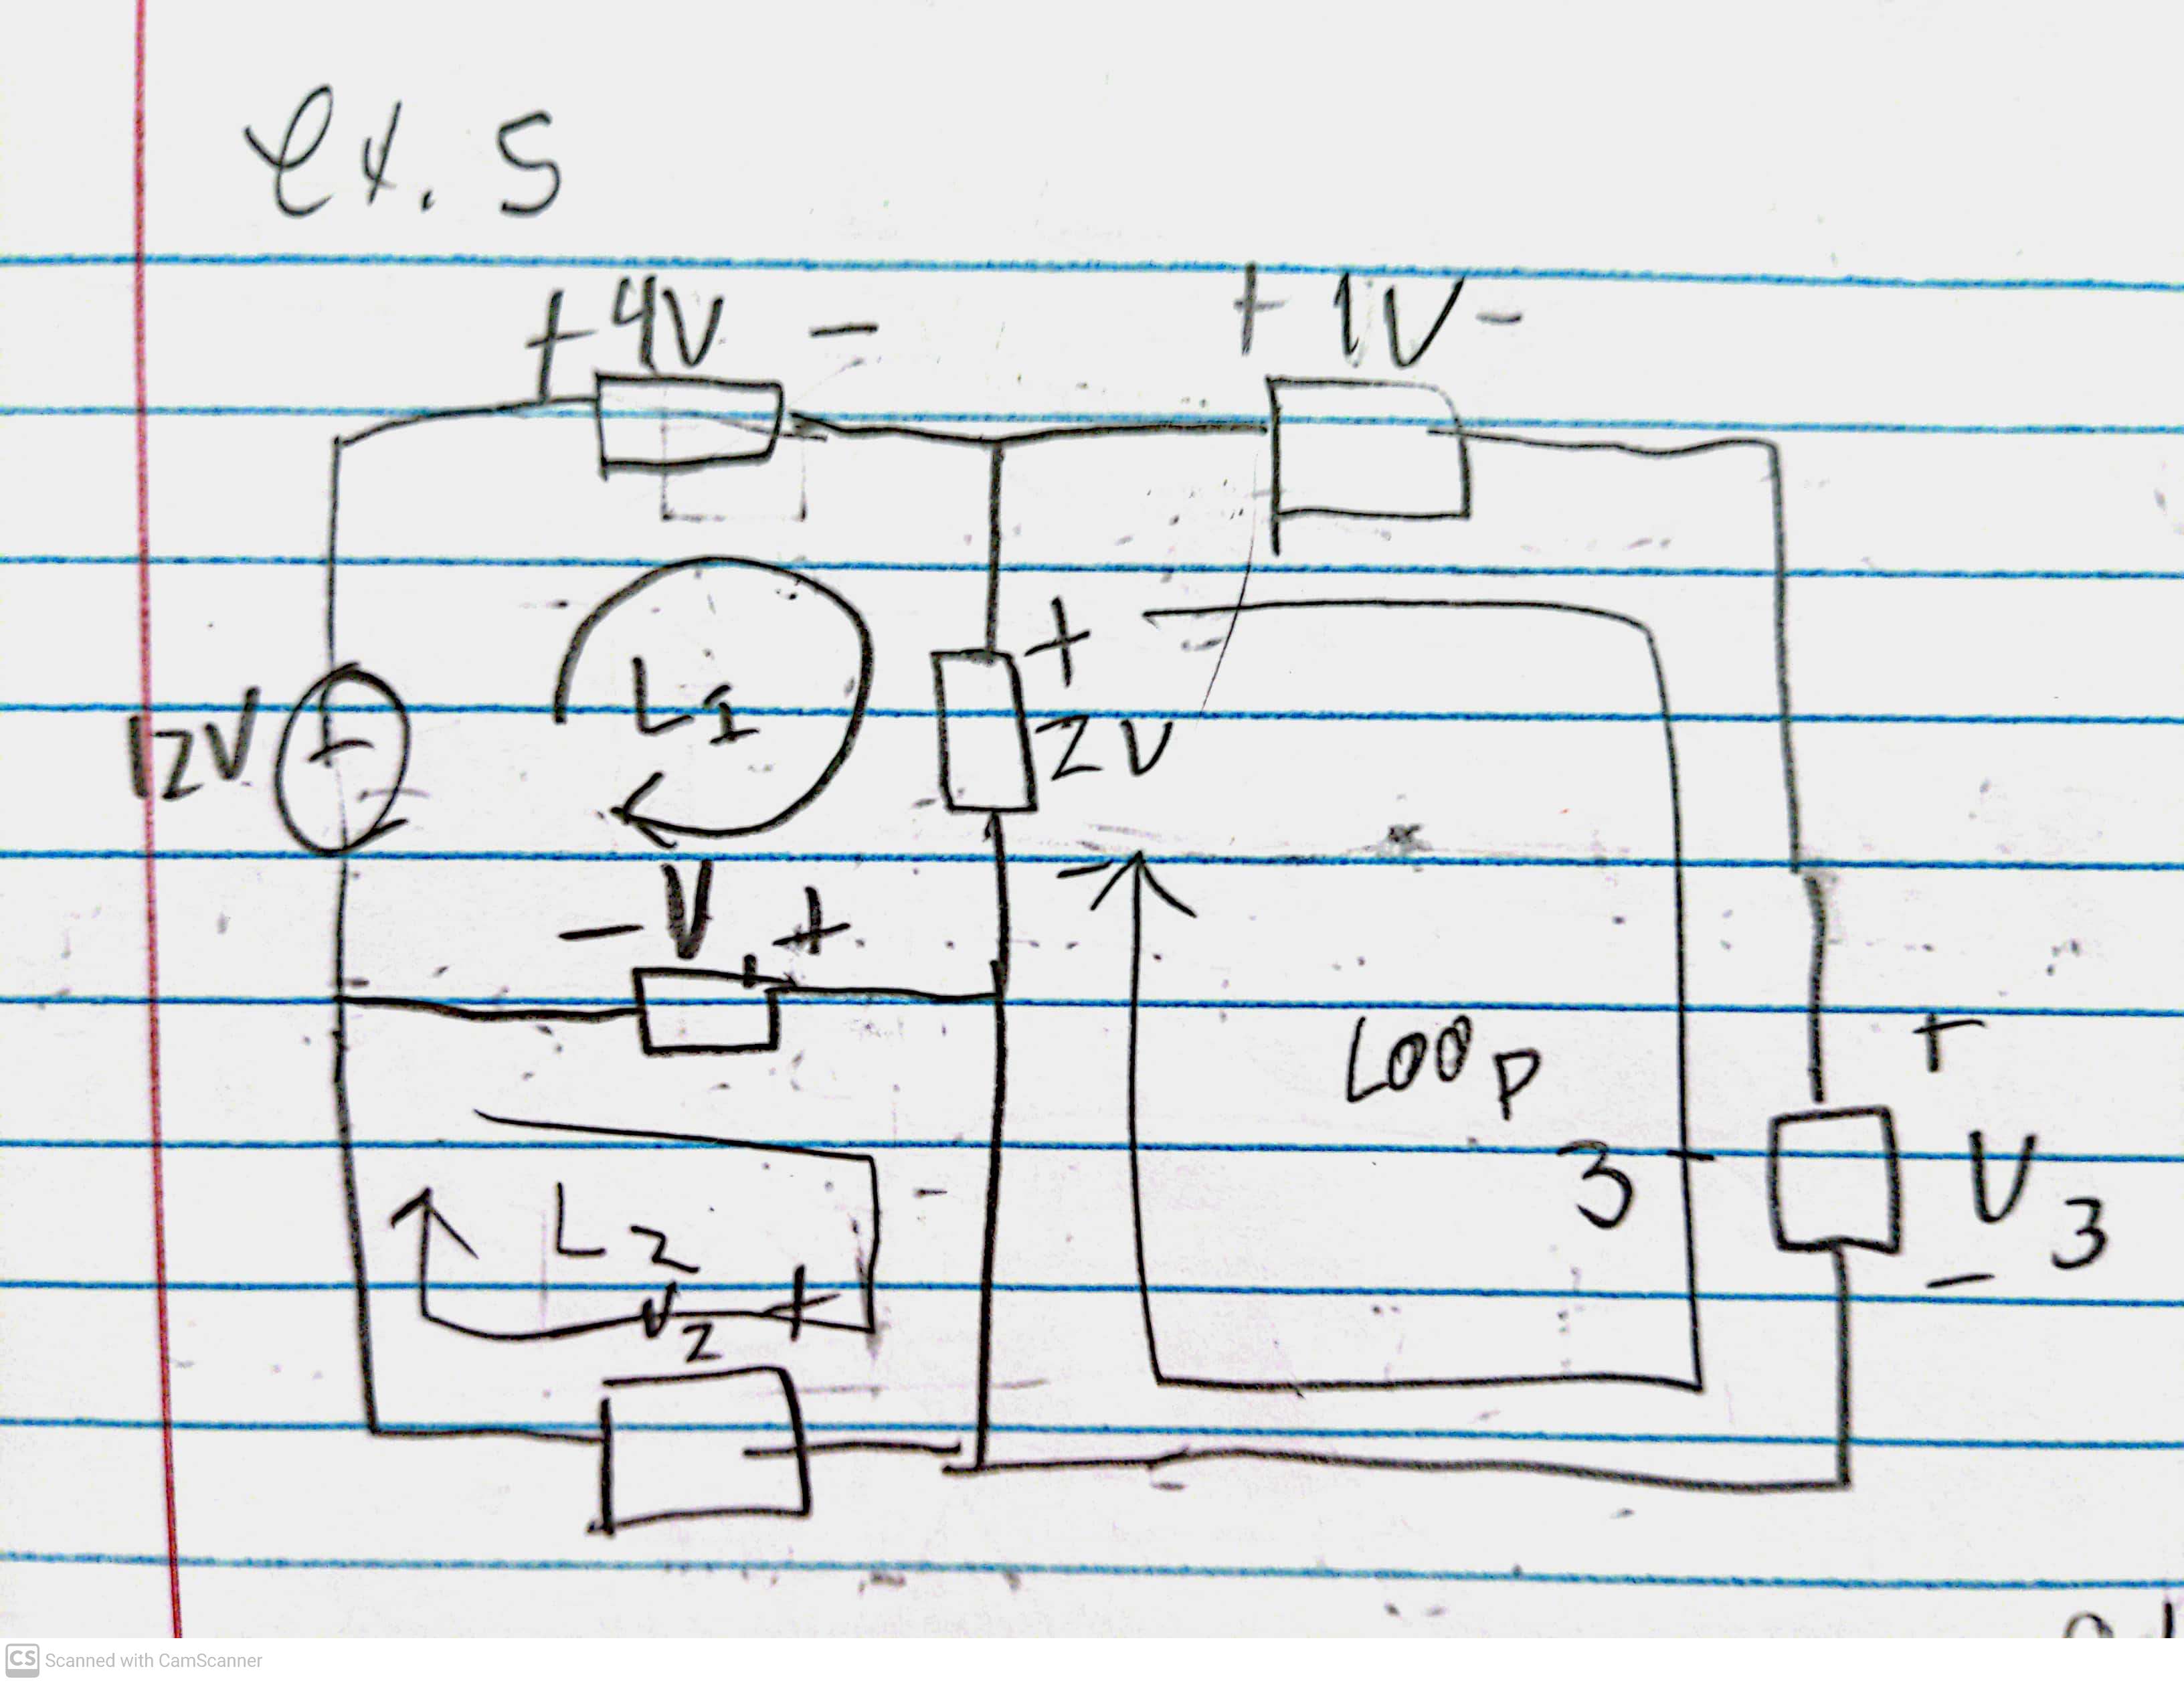 ex. 5
+ 4V -
+ 1V -
+
12V
+
-
L1
2V
-
- V1 +
Loop
3
+
V3
-
L2
V2 +
CS Scanned with CamScanner